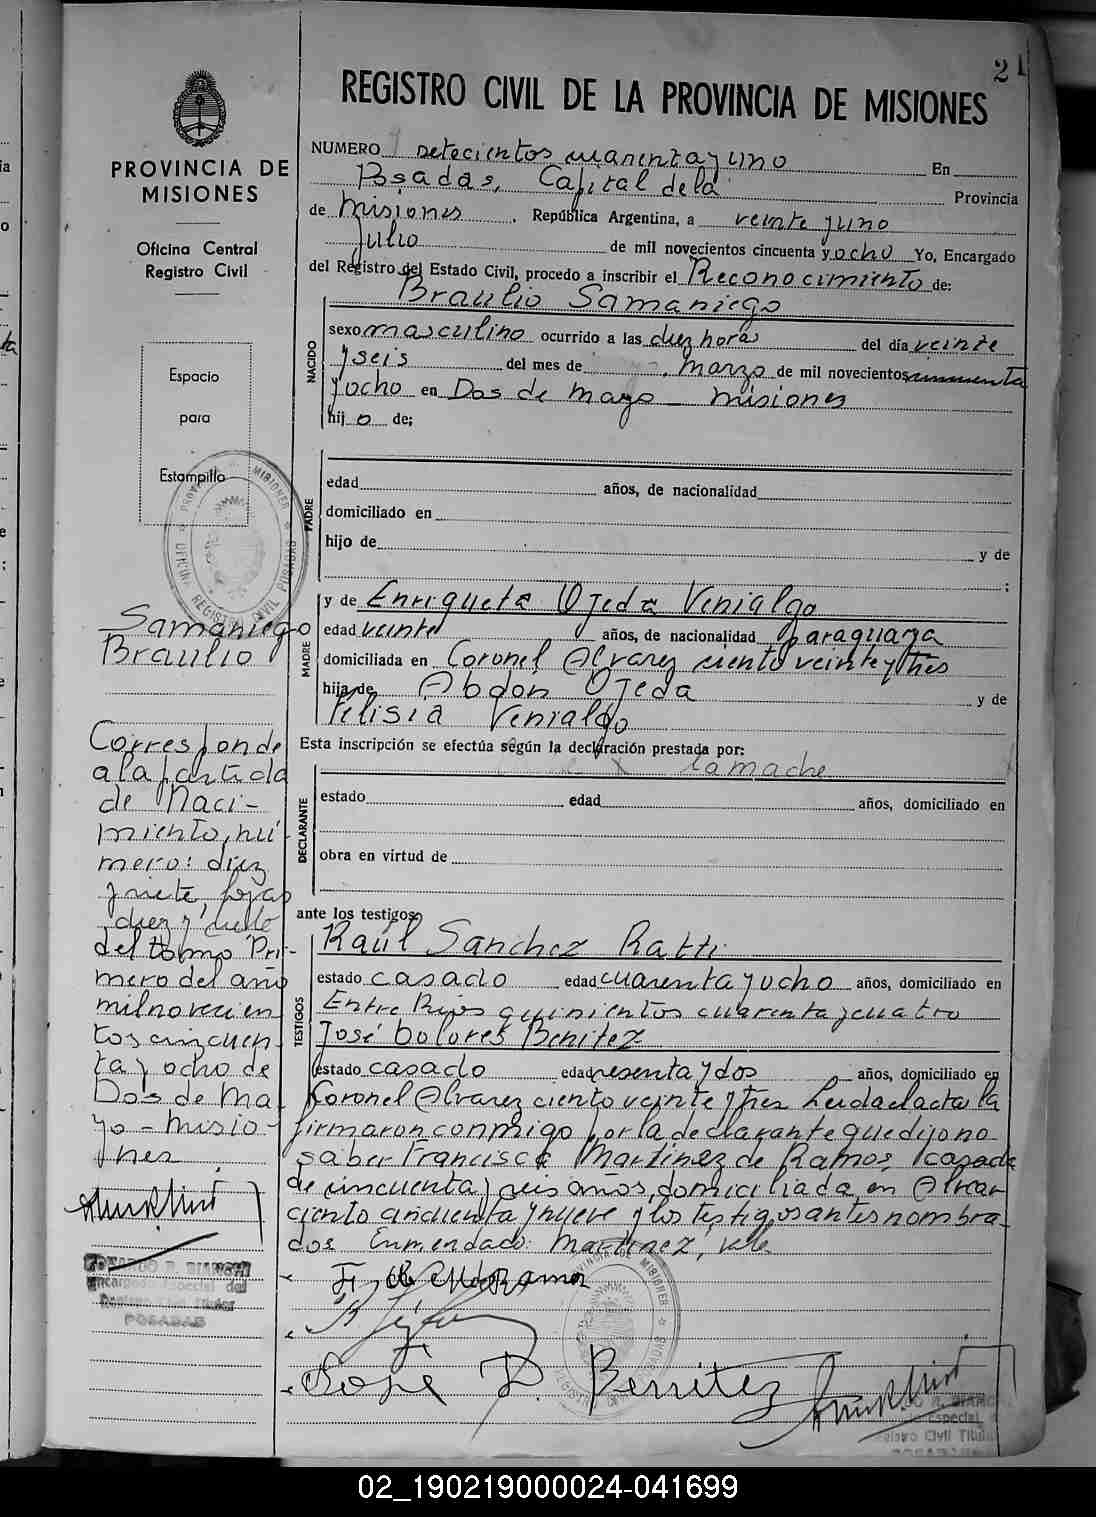 21
REGISTRO CIVIL DE LA PROVINCIA DE MISIONES
PROVINCIA DE
MISIONES
Oficina Central
Registro Civil
Espacio
para
Estampilla
NUMERO setecientos cuarenta y uno En
Posadas, Capital de la Provincia
de Misiones, República Argentina, a veinte y uno
Julio de mil novecientos cincuenta y ocho Yo, Encargado
del Registro del Estado Civil, procedo a inscribir el Reconocimiento de:
Braulio Samaniego
NACIDO
sexo masculino ocurrido a las diez horas del día veinte
y seis del mes de marzo de mil novecientos cincuenta
y ocho en Dos de Mayo - Misiones
hijo de;
PADRE
edad años, de nacionalidad
domiciliado en
hijo de y de
;
MADRE
y de Enriqueta Ojeda Venialgo
edad veinte años, de nacionalidad paraguaya
domiciliada en Coronel Alvarez ciento veinte y tres
hija de Abdón Ojeda y de
Felisia Venialgo
Esta inscripción se efectúa según la declaración prestada por:
la madre
DECLARANTE
estado edad años, domiciliado en
obra en virtud de
ante los testigos
Raúl Sanchez Ratti
TESTIGOS
estado casado edad cuarenta y ocho años, domiciliado en
Entre Rios quinientos cuarenta y cuatro
José Dolores Benitez
estado casado edad sesenta y dos años, domiciliado en
Coronel Alvarez ciento veinte y tres Leida el acta la
firmaron conmigo por la declarante que dijo no
saber Francisca Martinez de Ramos, casada
de cincuenta y seis años, domiciliada en Alvar
ciento cincuenta y nueve y los testigos antes nombra-
dos Enmendado: Martinez, vale
José D. Benitez
Samaniego
Braulio
Corresponde
a la partida
de Naci-
miento, nú-
mero: diez
y siete, fojas
diez y
del tomo Pri-
mero del año
mil novecien
tos cincuen-
ta y ocho de
Dos de Ma-
yo - Misio-
nes
EDUARDO R. BIANCHI
Encargado Especial del
Registro Civil Titular
POSADAS
PROVINCIA DE MISIONES
OFICINA REGISTRO CIVIL POSADAS
R. BIANCHI
Especial
Registro Civil Titular
POSADAS
02_190219000024-041699